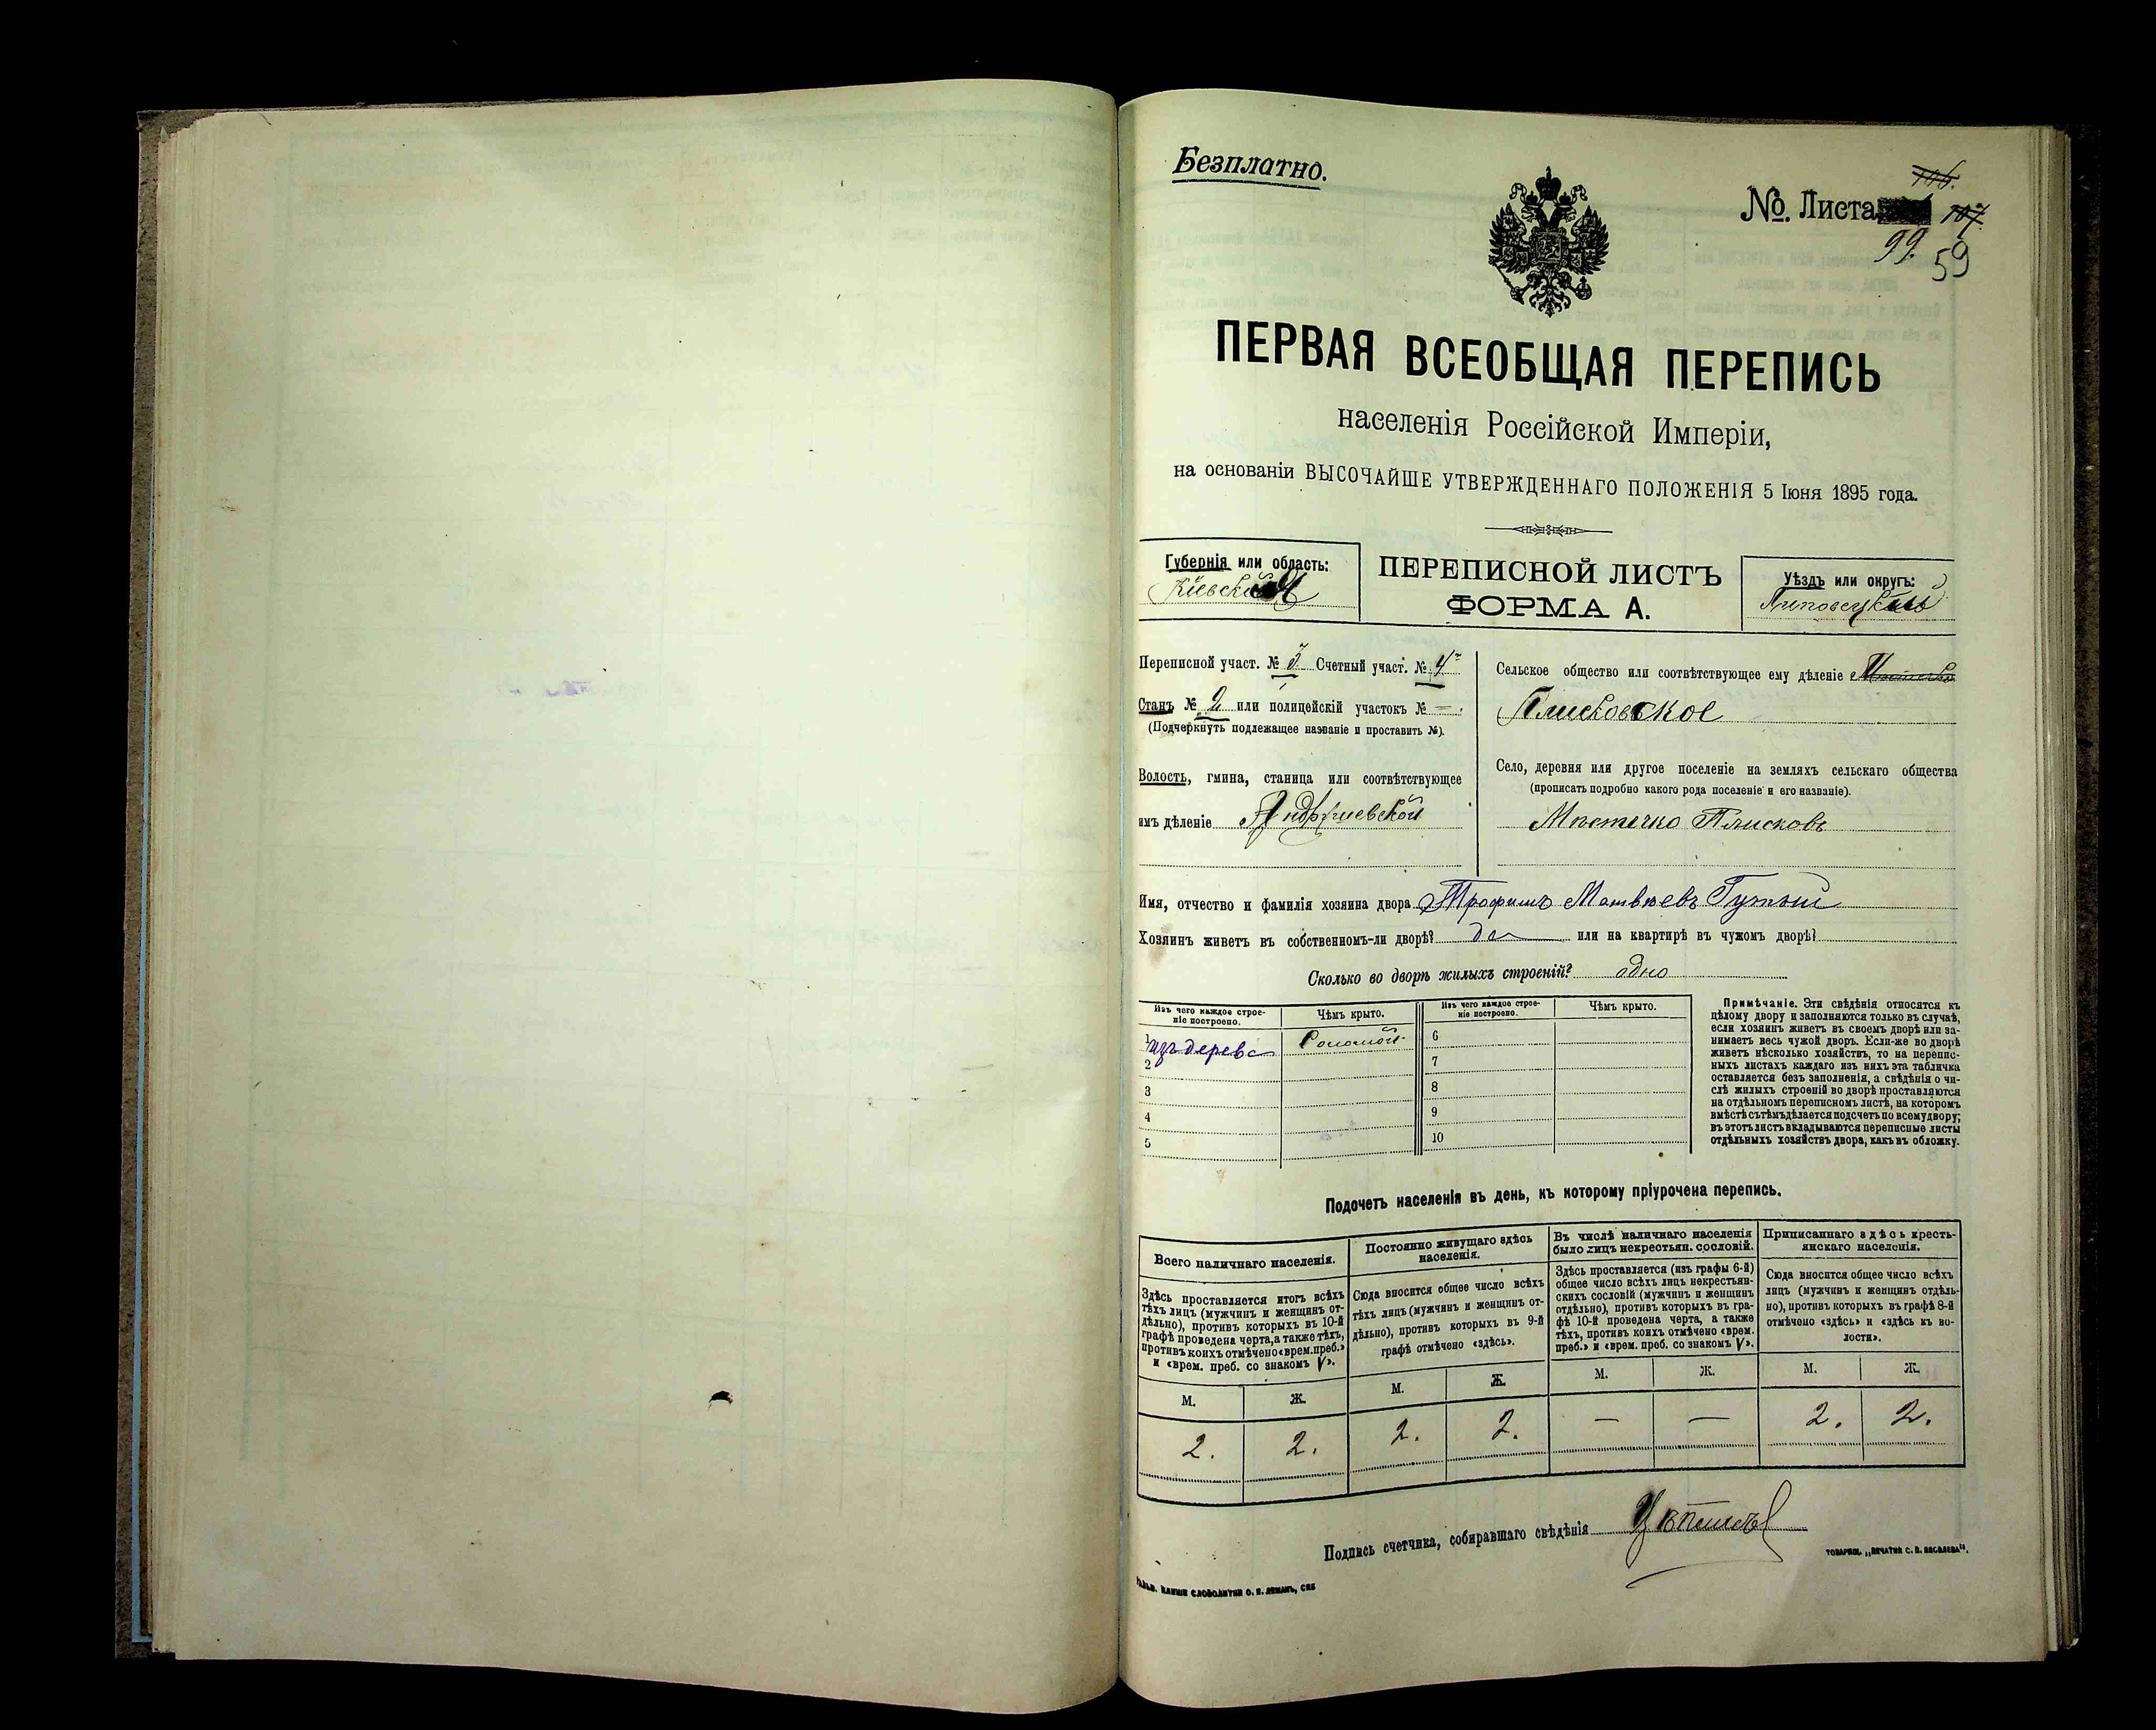 Безплатно.
№ Листа 107.
106.
99. 59
ПЕРВАЯ ВСЕОБЩАЯ ПЕРЕПИСЬ
населенія Россійской Имперіи,
на основаніи ВЫСОЧАЙШЕ УТВЕРЖДЕННАГО ПОЛОЖЕНІЯ 5 Іюня 1895 года.
Губернія или область:
ПЕРЕПИСНОЙ ЛИСТЪ
ФОРМА А.
Уѣздъ или округъ:
Липовецкій
Переписной участ. № 3 Счетный участ. № 4
Станъ № 2 или полицейскій участокъ № —
(Подчеркнуть подлежащее названіе и проставить №).
Волость, гмина, станица или соотвѣтствующее
имъ дѣленіе Андрушевской
Сельское общество или соотвѣтствующее ему дѣленіе
Плисковское
Село, деревня или другое поселеніе на земляхъ сельскаго общества
(прописать подробно какого рода поселеніе и его названіе).
Мѣстечко Плисковъ
Имя, отчество и фамилія хозяина двора Трофимъ Матвѣевъ
Хозяинъ живетъ въ собственномъ-ли дворѣ? да или на квартирѣ въ чужомъ дворѣ?
Сколько во дворѣ жилыхъ строеній? одно
Изъ чего каждое строе-
ніе построено.
Чѣмъ крыто.
Изъ чего каждое строе-
ніе построено.
Чѣмъ крыто.
1 изъ дерева Соломой
2
3
4
5
6
7
8
9
10
Примѣчаніе. Эти свѣдѣнія относятся къ
цѣлому двору и заполняются только въ случаѣ,
если хозяинъ живетъ въ своемъ дворѣ или за-
нимаетъ весь чужой дворъ. Если-же во дворѣ
живетъ нѣсколько хозяйствъ, то на перепис-
ныхъ листахъ каждаго изъ нихъ эта табличка
оставляется безъ заполненія, а свѣдѣнія о чи-
слѣ жилыхъ строеній во дворѣ проставляются
на отдѣльномъ переписномъ листѣ, на которомъ
вмѣстѣ съ тѣмъ дѣлается подсчетъ по всему двору;
въ этотъ листъ вкладываются переписные листы
отдѣльныхъ хозяйствъ двора, какъ въ обложку.
Подочетъ населенія въ день, къ которому пріурочена перепись.
Всего наличнаго населенія.
Здѣсь проставляется итогъ всѣхъ
тѣхъ лицъ (мужчинъ и женщинъ от-
дѣльно), противъ которыхъ въ 10-й
графѣ проведена черта, а также тѣхъ,
противъ коихъ отмѣчено «врем. преб.»
и «врем. преб. со знакомъ V».
Постоянно живущаго здѣсь
населенія.
Сюда вносится общее число всѣхъ
тѣхъ лицъ (мужчинъ и женщинъ от-
дѣльно), противъ которыхъ въ 9-й
графѣ отмѣчено «здѣсь».
Въ числѣ наличнаго населенія
было лицъ некрестьян. сословій.
Здѣсь проставляется (изъ графы 6-й)
общее число всѣхъ лицъ некрестьян-
скихъ сословій (мужчинъ и женщинъ
отдѣльно), противъ которыхъ въ гра-
фѣ 10-й проведена черта, а также
тѣхъ, противъ коихъ отмѣчено «врем.
преб.» и «врем. преб. со знакомъ V».
Приписаннаго здѣсь кресть-
янскаго населенія.
Сюда вносится общее число всѣхъ
лицъ (мужчинъ и женщинъ отдѣль-
но), противъ которыхъ въ графѣ 8-й
отмѣчено «здѣсь» и «здѣсь къ во-
лости».
М. Ж. М. Ж. М. Ж. М. Ж.
2. 2. 2. 2. — — 2. 2.
Подпись счетчика, собиравшаго свѣдѣнія
ТОВАРИЩ. „ПЕЧАТНЯ С. П. ЯКОВЛЕВА“.
КЛИШЕ СЛОВОЛИТНИ О. И. ЛЕМАНЪ, СПБ